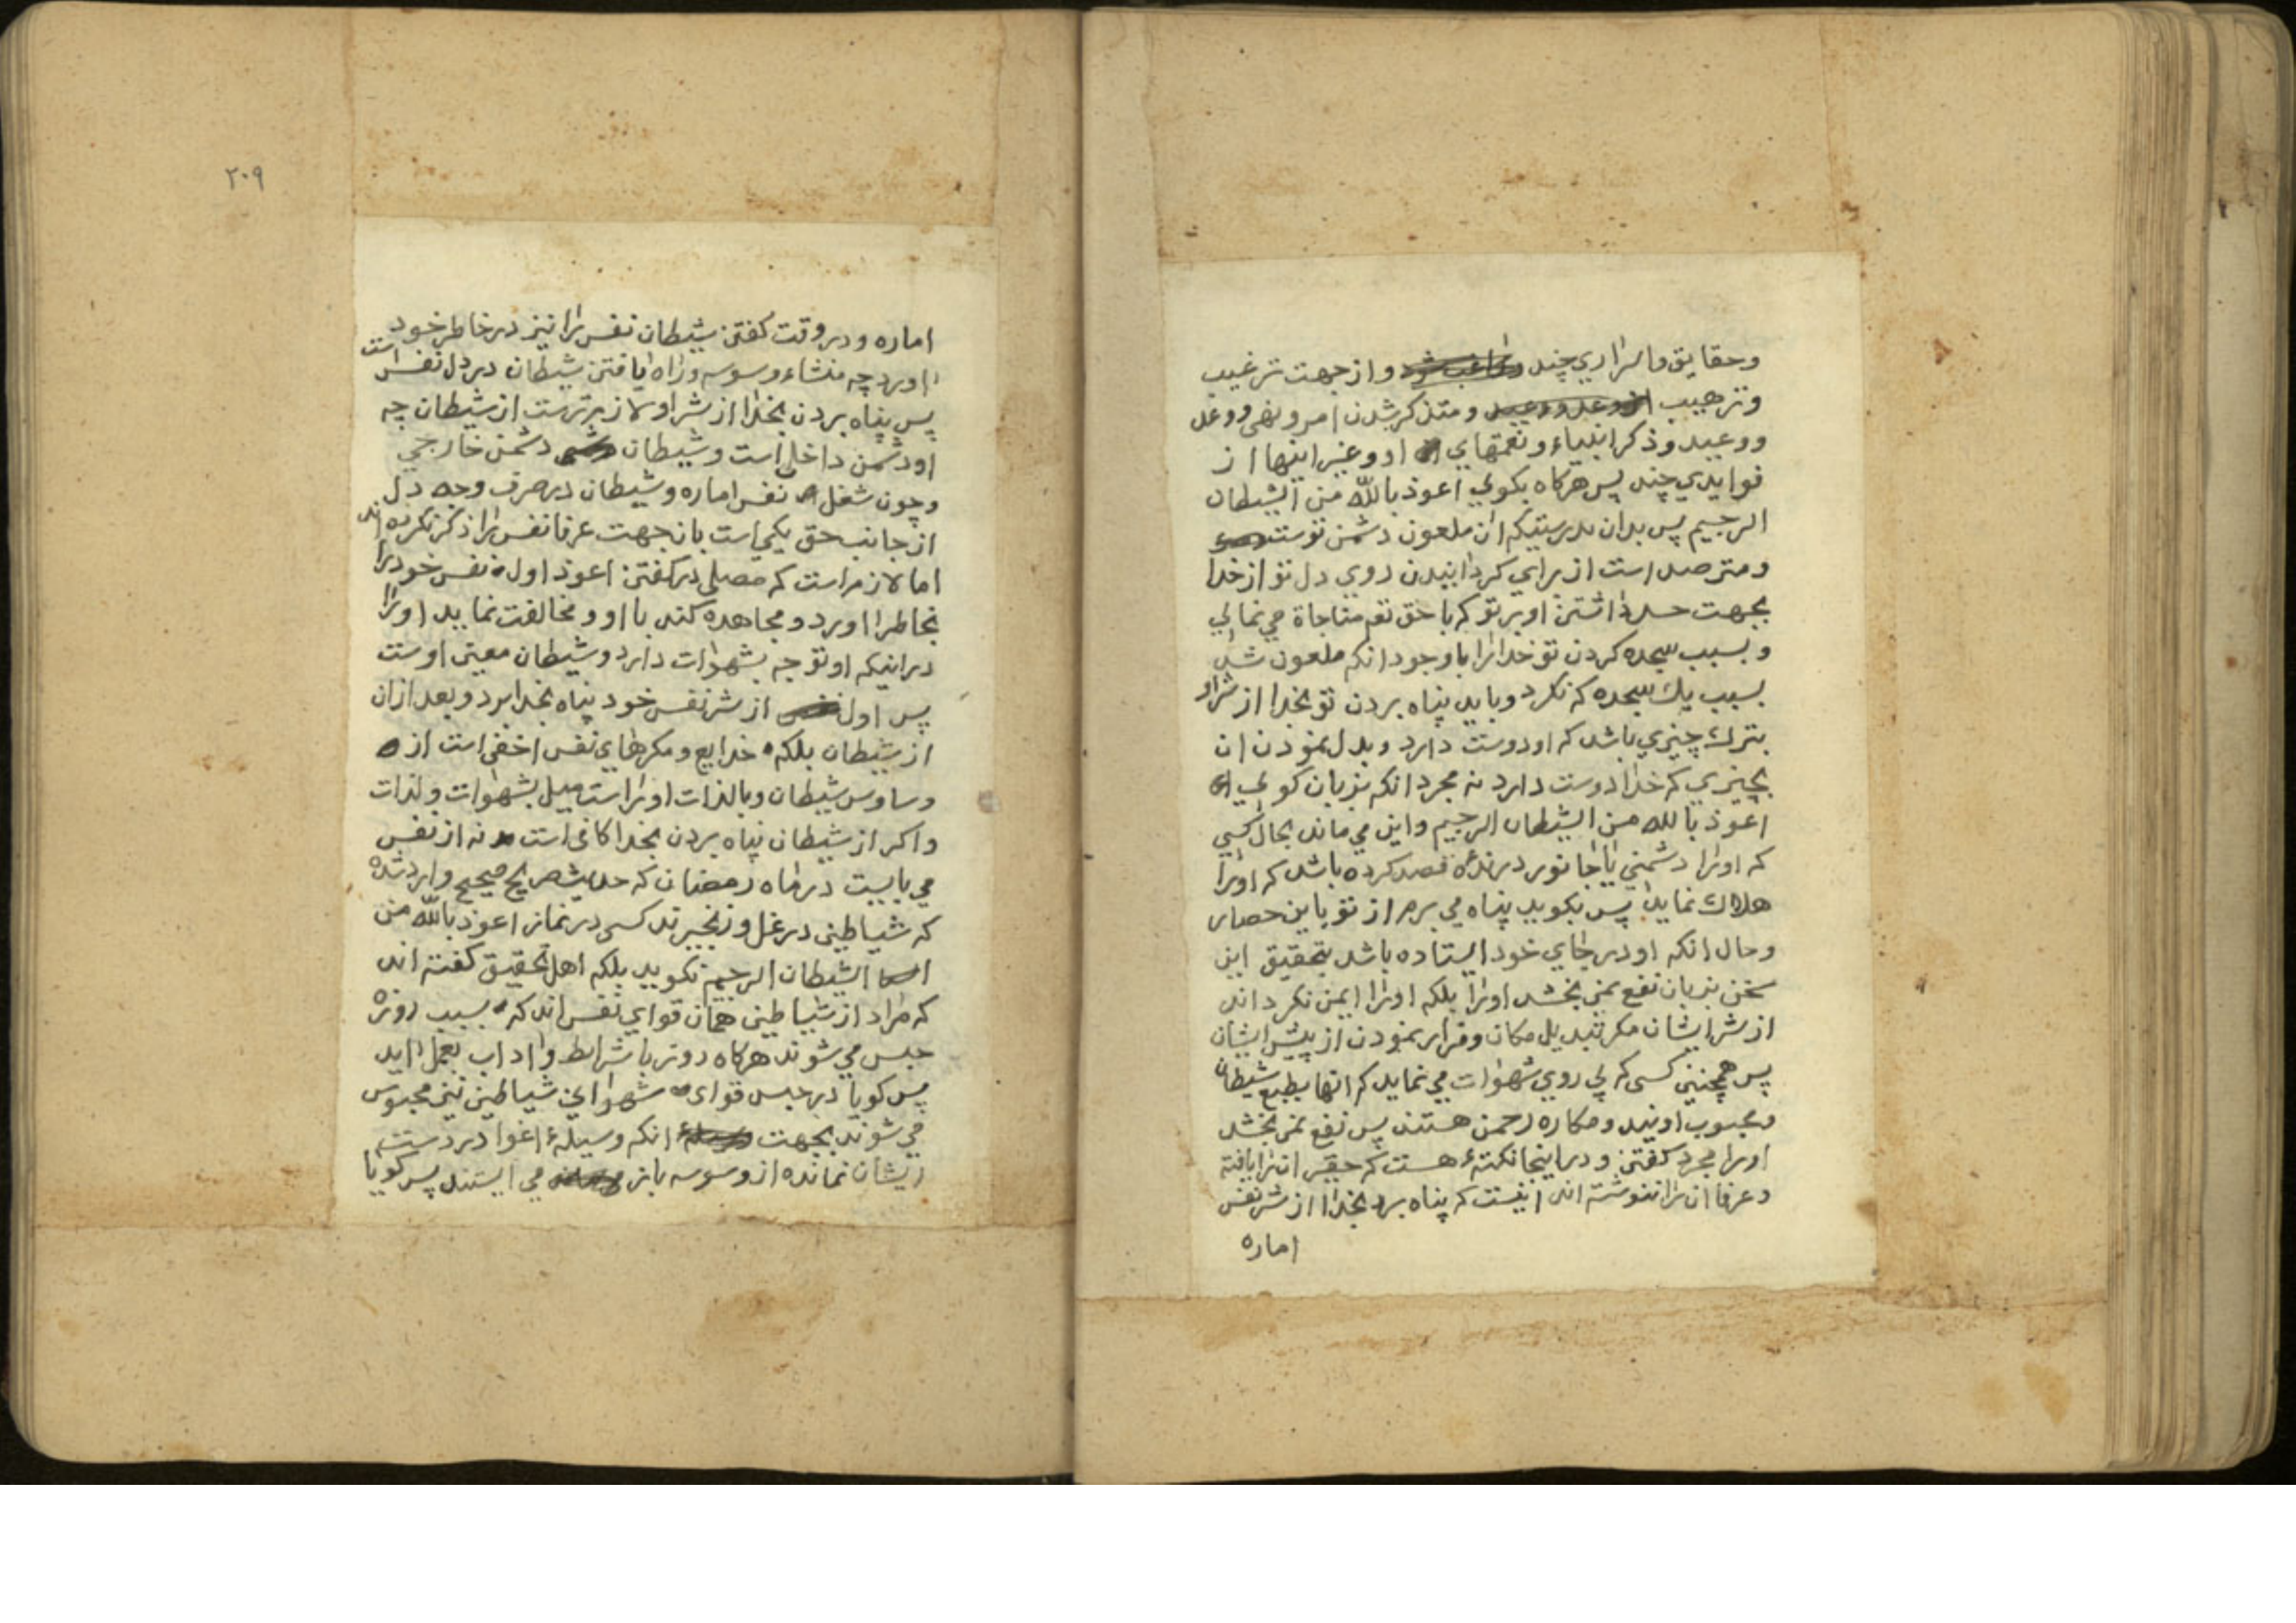 وحقایق واسراری چند واز جهت ترغیب
وترهیب ومتذکر شدن امر ونهی ووعد
ووعید وذکر انبیاء ونعمتهای او وغیر اینها از
فوایدی چند پس هرکاه بکوئی اعوذ بالله من الشیطان
الرجیم پس بدان بدرستیکه ان ملعون دشمن توست
ومترصد است از برای کردانیدن روی دل تو از خدا
بجهت حسد داشتن او بر تو که با حق تعم مناجاة می نمائی
وبسبب سجده کردن تو خدا را با وجود انکه ملعون شد
بسبب یك سجده که نکرد وباید پناه بردن تو بخدا از شر او
بترك چیزی باشد که او دوست دارد وبدل نمودن ان
بچیزی که خدا دوست دارد نه مجرد انکه بزبان کوئی
اعوذ بالله من الشیطان الرجیم واین می ماند بحال کسی
که او را دشمنی یا جانور درندهٔ قصد کرده باشد که او را
هلاك نماید پس بکوید پناه می برم از تو باین حصار
وحال انکه او در جای خود ایستاده باشد بتحقیق این
سخن بزبان نفع نمی بخشد او را بلکه او را ایمن نکرداند
از شر ایشان مکر تبدیل مکان وفرار نمودن از پیش ایشان
پس همچنین کسی که پی روی شهوات می نماید که انها بطبع شیطان
ومحبوب اویند ومکاره رحمن هستند پس نفع نمی بخشد
او را مجرد کفتن ودر اینجا نکتهٔ هست که حقیر ان را یافته
وعرفا ان را ننوشته اند اینست که پناه برد بخدا از شر نفس
اماره
٢٠٩
اماره ودر وقت کفتن شیطان نفس را نیز در خاطر خود
اورد چه منشاء وسوسه وراه یافتن شیطان در دل نفس است
پس پناه بردن بخدا از شر او لازم ترست از شیطان چه
او دشمن داخلی است وشیطان دشمن خارجی
وچون شغل نفس اماره وشیطان در صرف وجه دل
از جانب حق یکی است بانجهت عرفا نفس را ذکر نکرده اند
اما لازم است که مصلی در کفتن اعوذ اول نفس خود را
بخاطر اورد ومجاهده کند با او ومخالفت نماید او را
در اینکه او توجه بشهوات دارد وشیطان معین اوست
پس اول از شر نفس خود پناه بخدا برد وبعد از ان
از شیطان بلکه خدایع ومکرهای نفس اخفی است از
وساوس شیطان وبالذات او راست میل بشهوات ولذات
واکر از شیطان پناه بردن بخدا کافی است نه از نفس
می بایست در ماه رمضان که حدیث صریح صحیح وارد شده
که شیاطین در غل وزنجیرند کسی در نماز اعوذ بالله من
الشیطان الرجیم نکوید بلکه اهل تحقیق کفته اند
که مراد از شیاطین همان قوای نفس اند که بسبب روزه
حبس می شوند هرکاه روزه با شرایط واداب بعمل اید
پس کویا در حبس قوای شهوانی شیاطین نیز محبوس
می شوند بجهت انکه وسیلهٔ اغوا در دست
ایشان نمانده از وسوسه باز می ایستند پس کویا